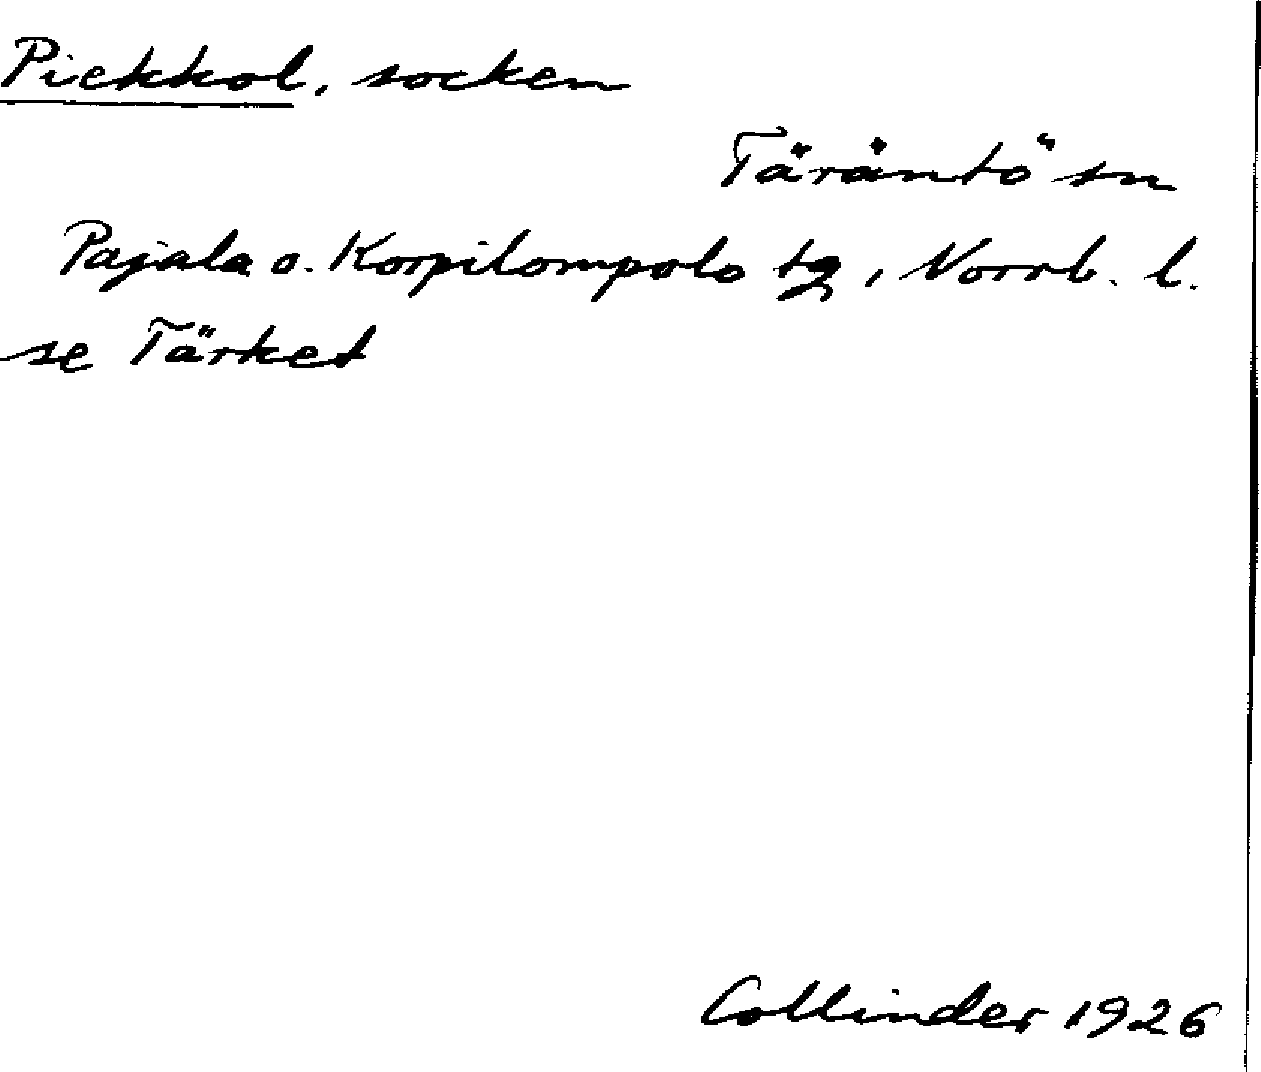 Piekkol, socken
Täräntö sn
Pajala o. Korpilompolo tg, Norrb. l.
se Tärket
Collinder 1926